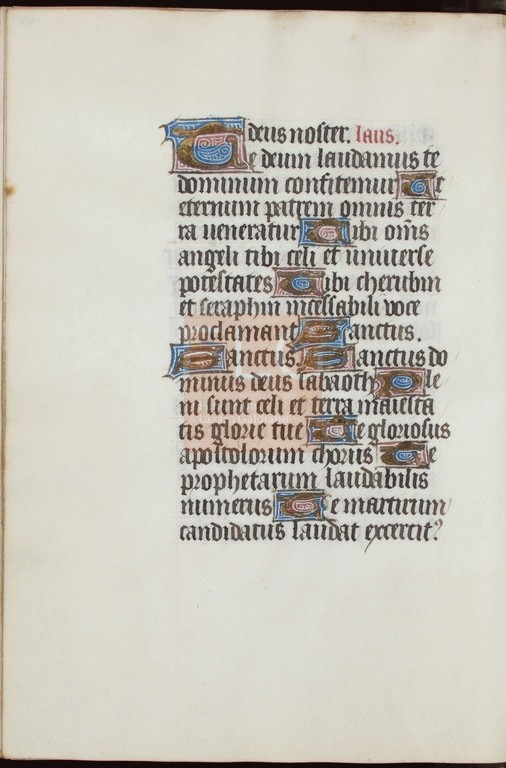 deus noster. laus.
Te deum laudamus te
dominum confitemur Te
eternum patrem omnis ter
ra ueneratur Tibi om̅s
angeli tibi celi et uniuerse
potestates Tibi cherubin
et seraphin incessabili uoce
proclamant Sanctus.
Sanctus. Sanctus do
minus deus sabaoth Ple
ni sunt celi et terra maiesta
tis glorie tue Te gloriosus
apostolorum chorus Te
prophetarum laudabilis
numerus Te martirum
candidatus laudat exercit?